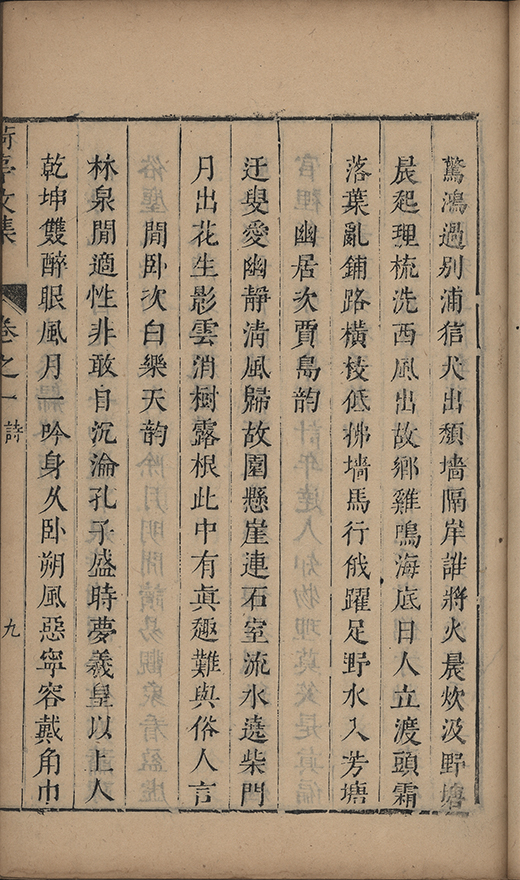 驚鴻過别浦猘犬出頽墻隔岸誰將火晨炊汲野塘
晨起理梳洗西風出故鄉雞鳴海底日人立渡頭霜
落葉亂鋪路橫枝低拂墻馬行俄躍足野水入芳塘
幽居次賈島韵
迂叟愛幽靜清風歸故園懸崖連石室流水遶柴門
月出花生影雲消樹露根此中有眞趣難與俗人言
閒卧次白樂天韵
林泉閒適性非敢自沉淪孔子盛時夢羲皇以上人
乾坤雙醉眼風月一吟身久卧朔風惡寧容戴角巾
亭文集
卷之一
詩
九